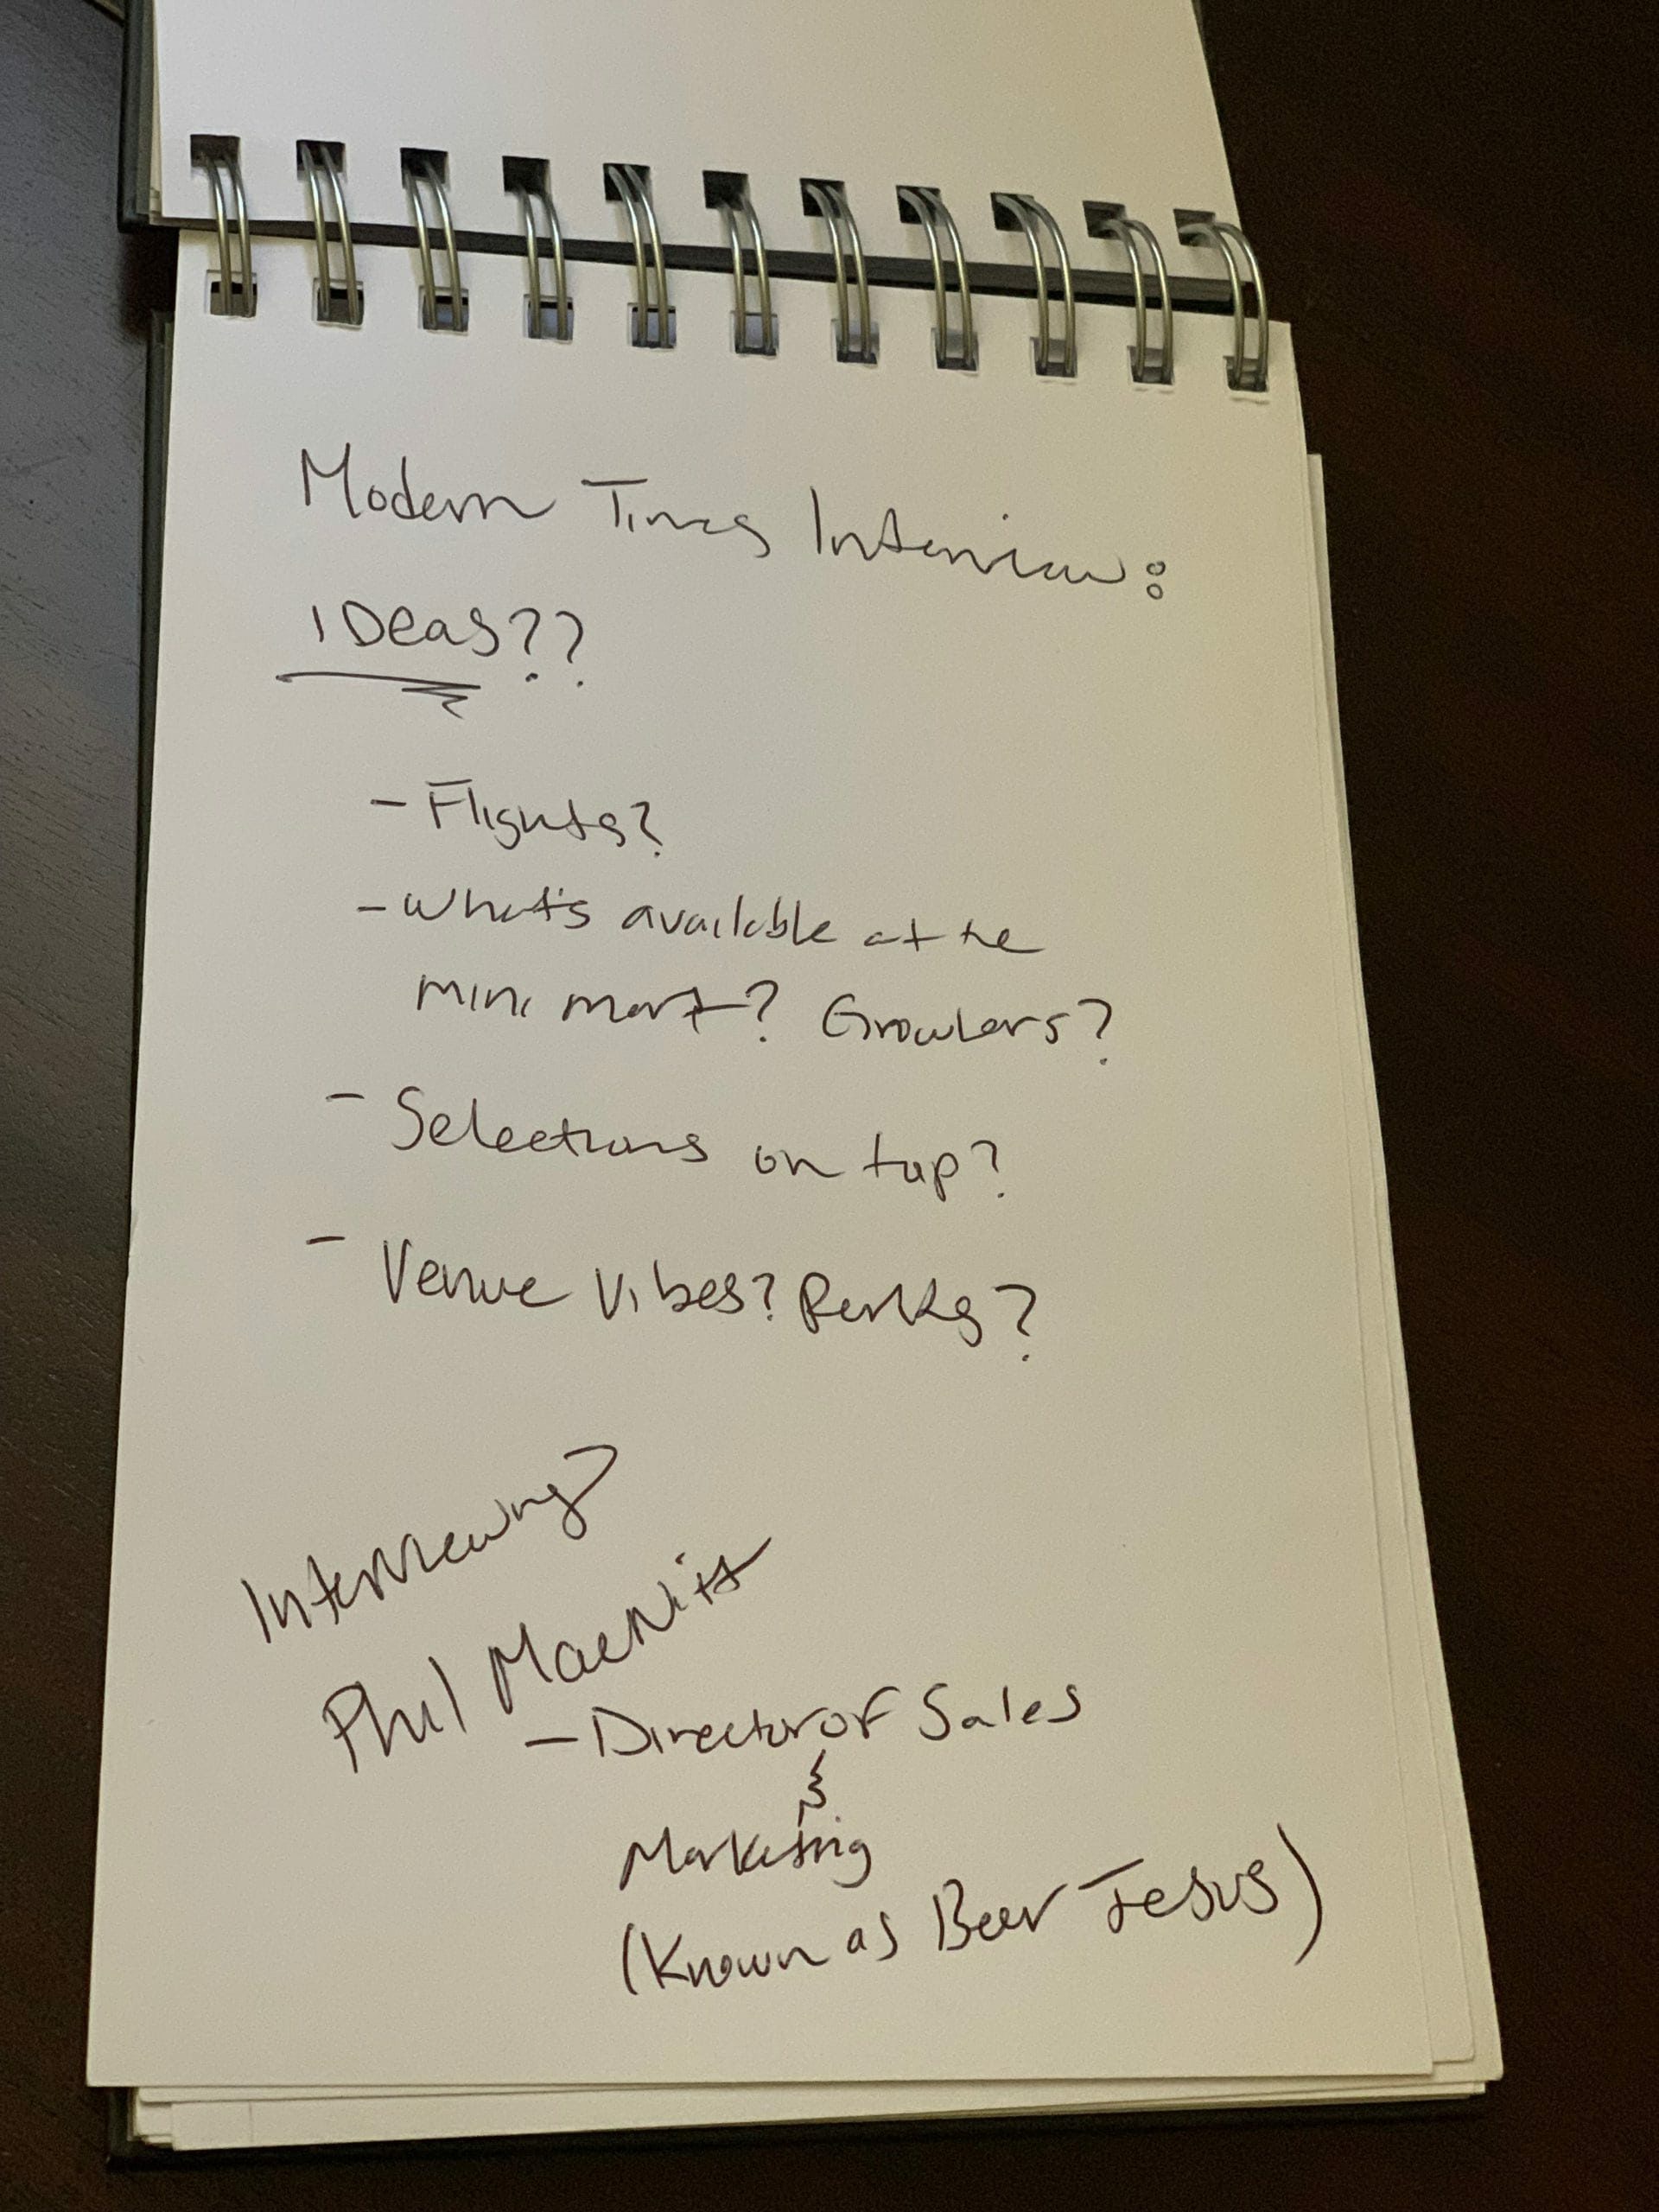 Modern Times Interview:
IDeas??
- Flights?
- What's available at the
mini mart? Growlers?
- Selections on tap?
- Venue Vibes? Perks?
Interviewing?
Phil MacNitt
- Director of Sales
&
Marketing
(Known as Beer Jesus)